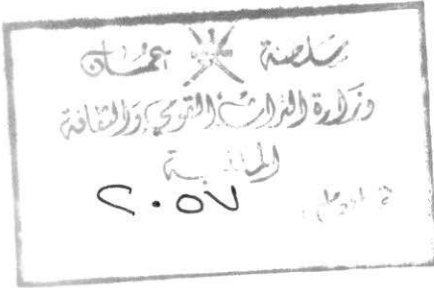 سلطنة عمان
وزارة التراث القومي والثقافة
٢٠٥٧